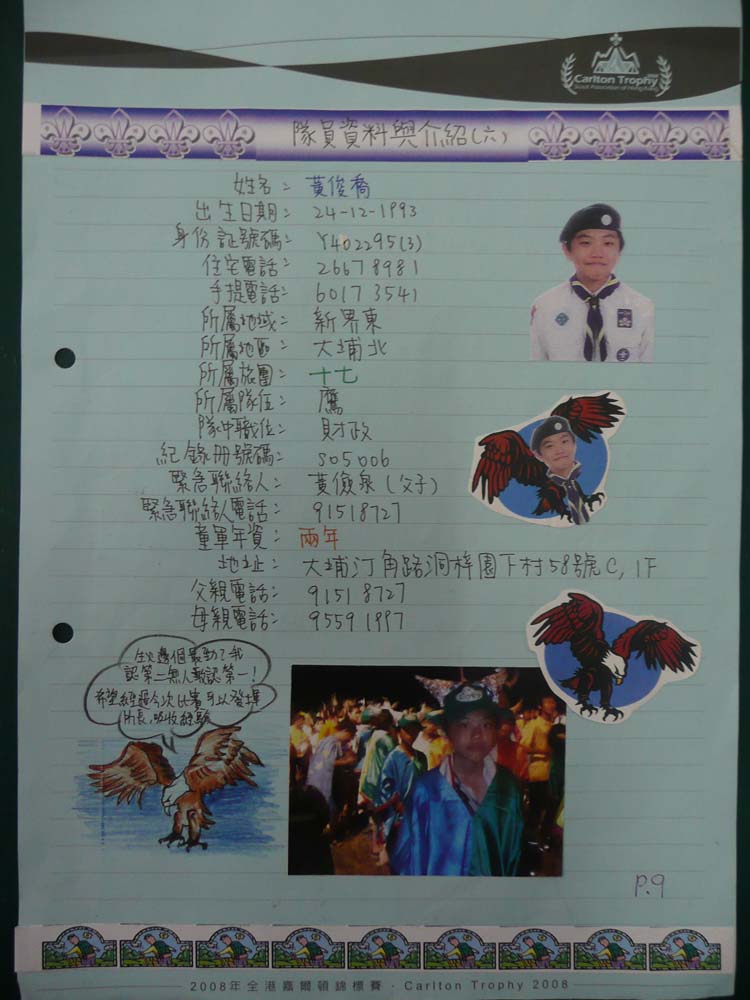 Carlton Trophy
Scout Association of Hong Kong
隊員資料與介紹(六)
姓名: 黃俊喬
出生日期: 24-12-1993
身份証號碼: Y402295(3)
住宅電話: 26678981
手提電話: 60173541
所屬地域: 新界東
所屬地區: 大埔北
所屬旅團: 十七
所屬隊伍: 鷹
隊中職位: 財政
紀錄冊號碼: S05006
緊急聯絡人: 黃儉泉(父子)
緊急聯絡人電話: 91518727
童軍年資: 兩年
地址: 大埔汀角路洞梓園下村58號C, 1F
父親電話: 91518727
母親電話: 95591997
邊個最勁?我
認第二無人敢認第一!
希望經過今次比賽可以發揮
所長,吸收經驗
P.9
2008年全港嘉爾頓錦標賽 · Carlton Trophy 2008